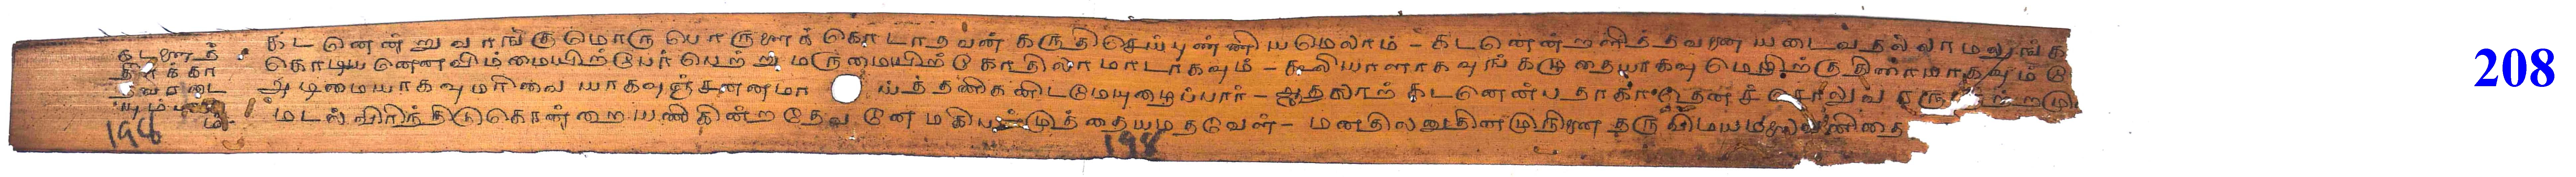 கடனைத்
திரக்கா
தவரடை
யும்
கடனென்று வாங்குமொரு பொருளைக் கொடாதவன் கருதிசெய்புண்ணியமெலாம் - கடனென்றளித்தவனை யடைவதல்லாமலுங்
கொடியனெனவிம்மையிற்பேர்பெற்று மருமையிற் கோதிலாமாடாகவும் - கூலியாளாகவுங் கழுதையாகவு மெழிற்குதிரையாகவும்
அடிமையாகவுமரிவை யாகவுஞ்சன்னமா யத்தனிகனிடமேயுழைப்பார் - ஆதலாற் கடனென்பதாகாதெனச்
மடல்விரிந்திடுகொன்றை யணிகின்ற தேவனே மகிபன் முத்தையமதவேள் - மனதிலனுதின முறை தரு விமயமலை
198
198
208